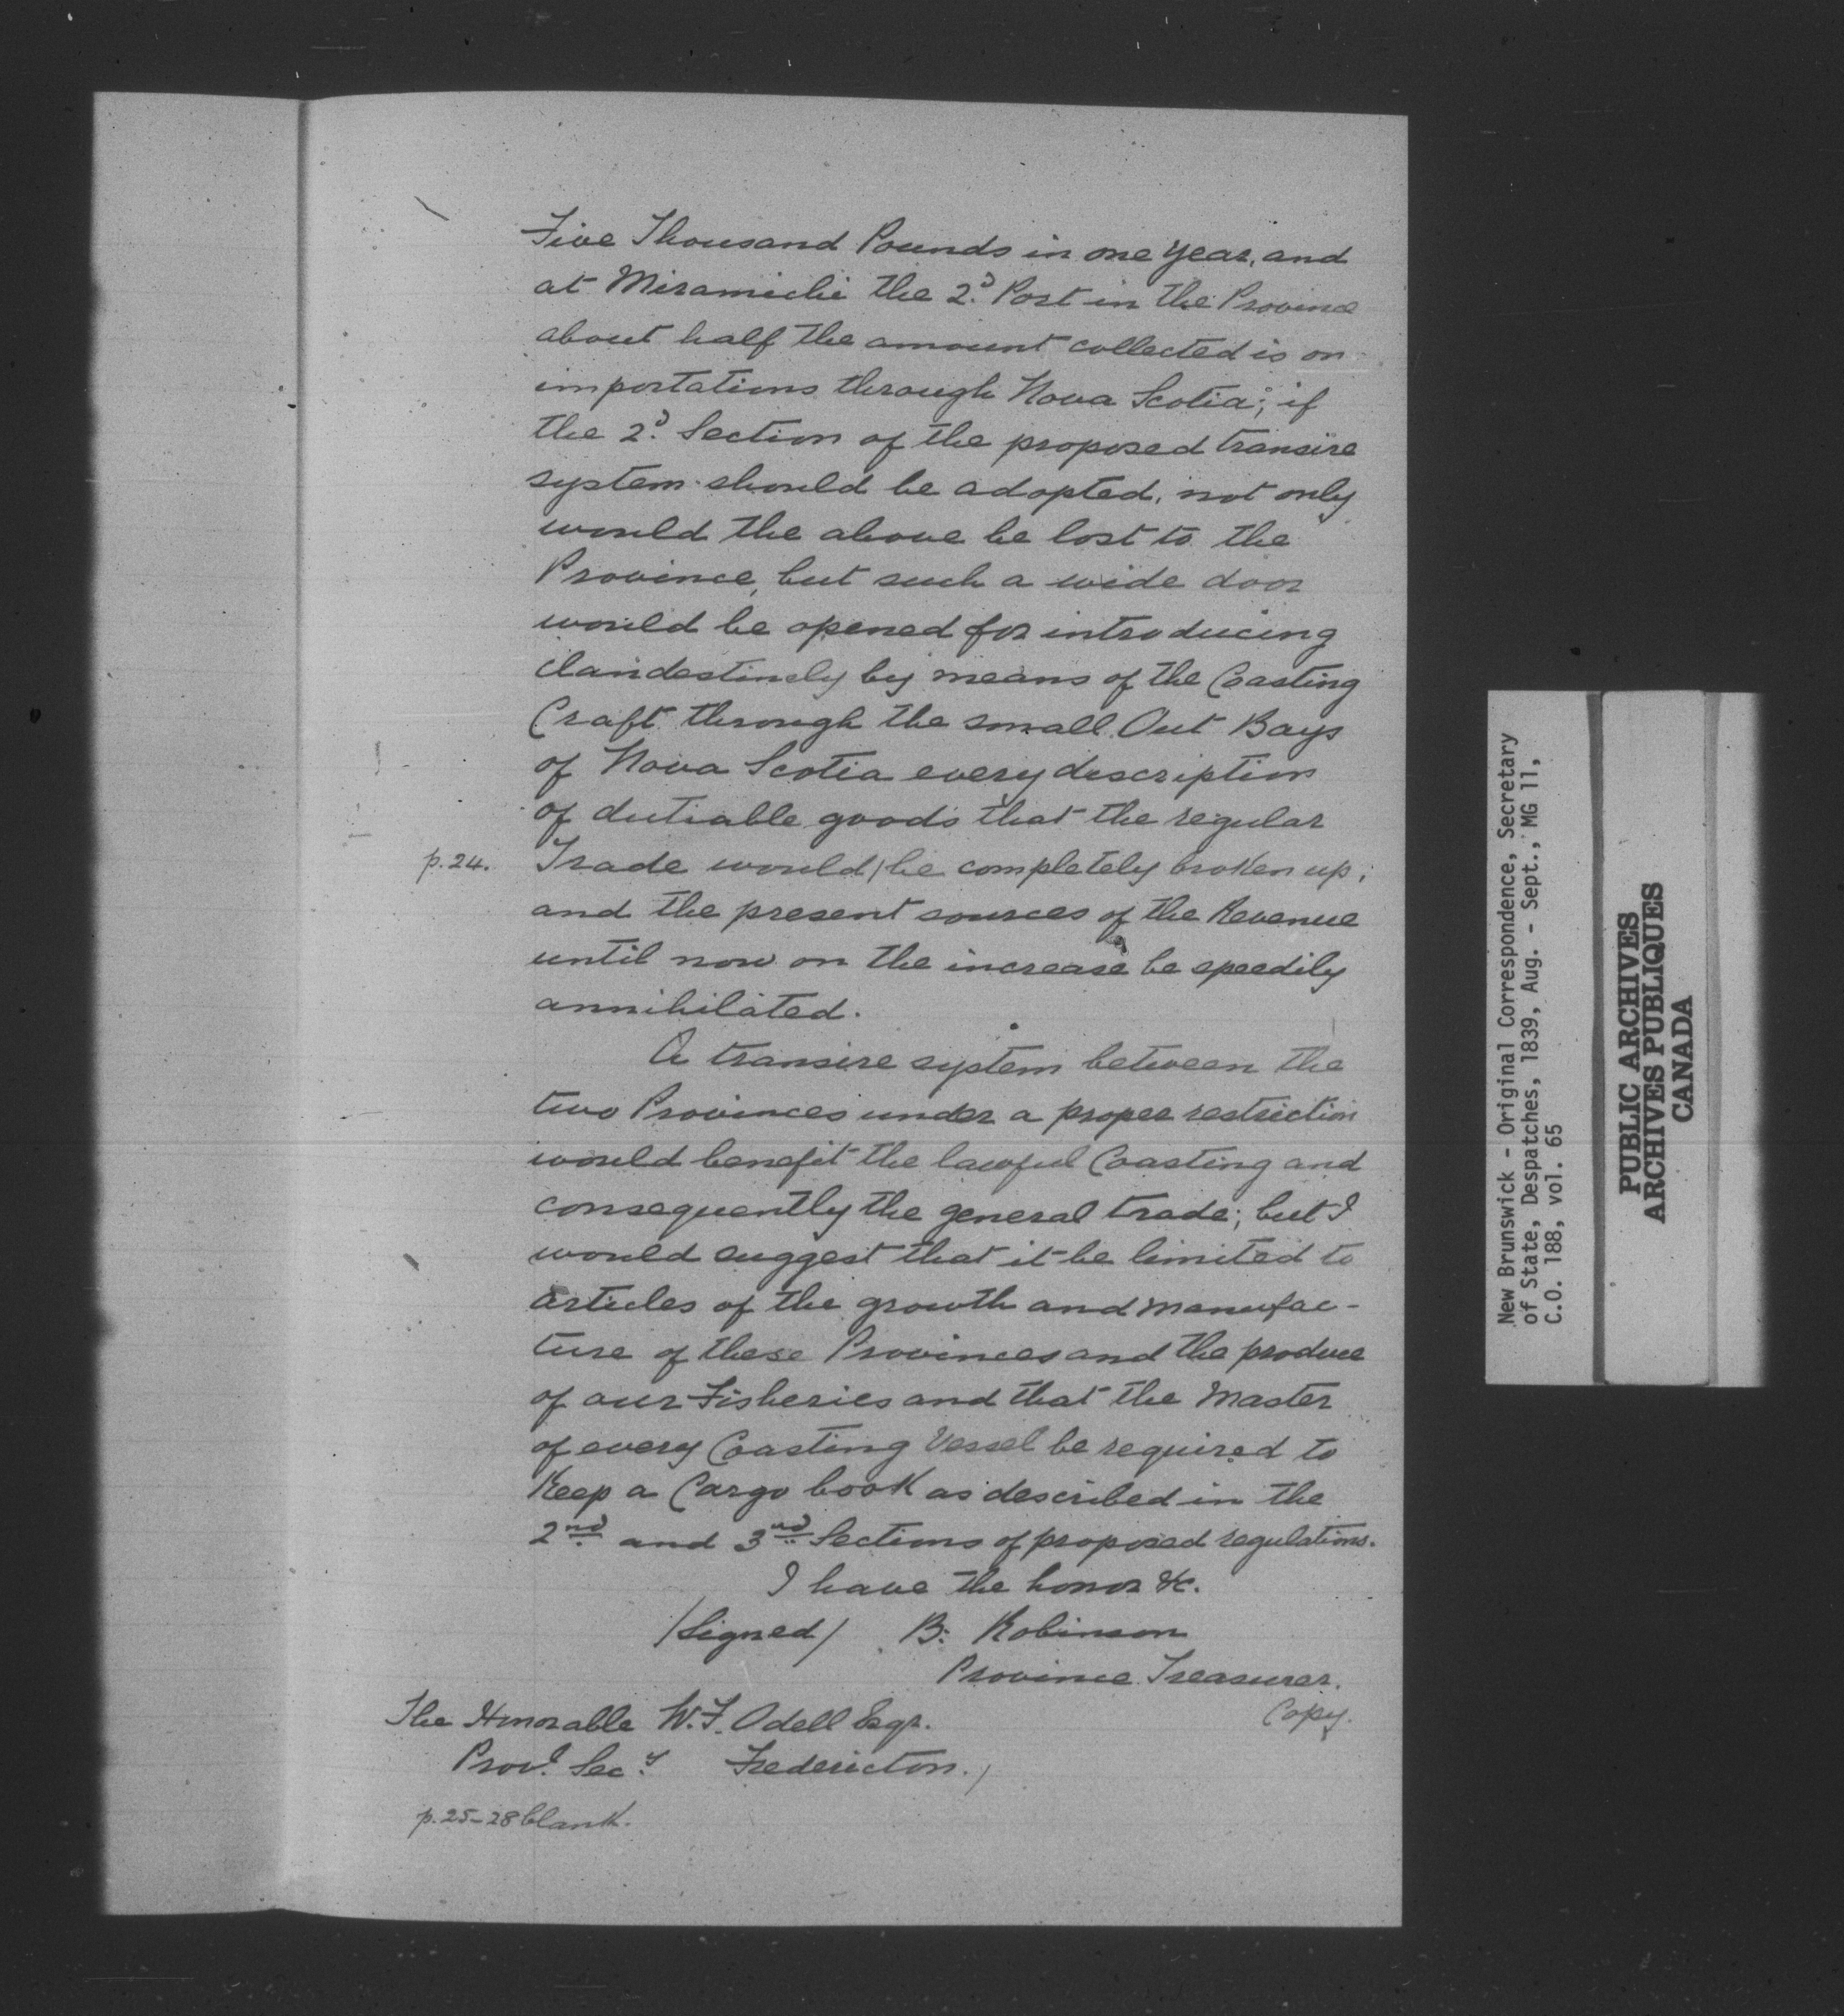 Five Thousand Pounds in one year, and
at Miramichi the 2d. Port in the Province
about half the amount collected is on
importations through Nova Scotia; if
the 2d. Section of the proposed transire
system should be adopted, not only
would the above be lost to the
Province, but such a wide door
would be opened for introducing
clandestinely by means of the Coasting
Craft through the small Out Bays
of Nova Scotia every description
of dutiable goods that the regular
p.24. Trade would/be completely broken up;
and the present sources of the Revenue
until now on the increase be speedily
annihilated.
A transire system between the
two Provinces under a proper restriction
would benefit the lawful Coasting and
consequently the general trade; but I
would suggest that it be limited to
articles of the growth and manufac-
ture of these Provinces and the produce
of our Fisheries and that the Master
of every Coasting Vessel be required to
Keep a Cargo book as described in the
2nd and 3rd Sections of proposed regulations.
I have the honor &c.
/Signed/ B: Robinson
Province Treasurer.
Copy.
The Honorable W.F. Odell Esqr.
Provl. Secy. Fredericton./
p.25-28 blank.
New Brunswick - Original Correspondence, Secretary
of State, Despatches, 1839, Aug. - Sept., MG 11,
C.O. 188, vol. 65
PUBLIC ARCHIVES
ARCHIVES PUBLIQUES
CANADA